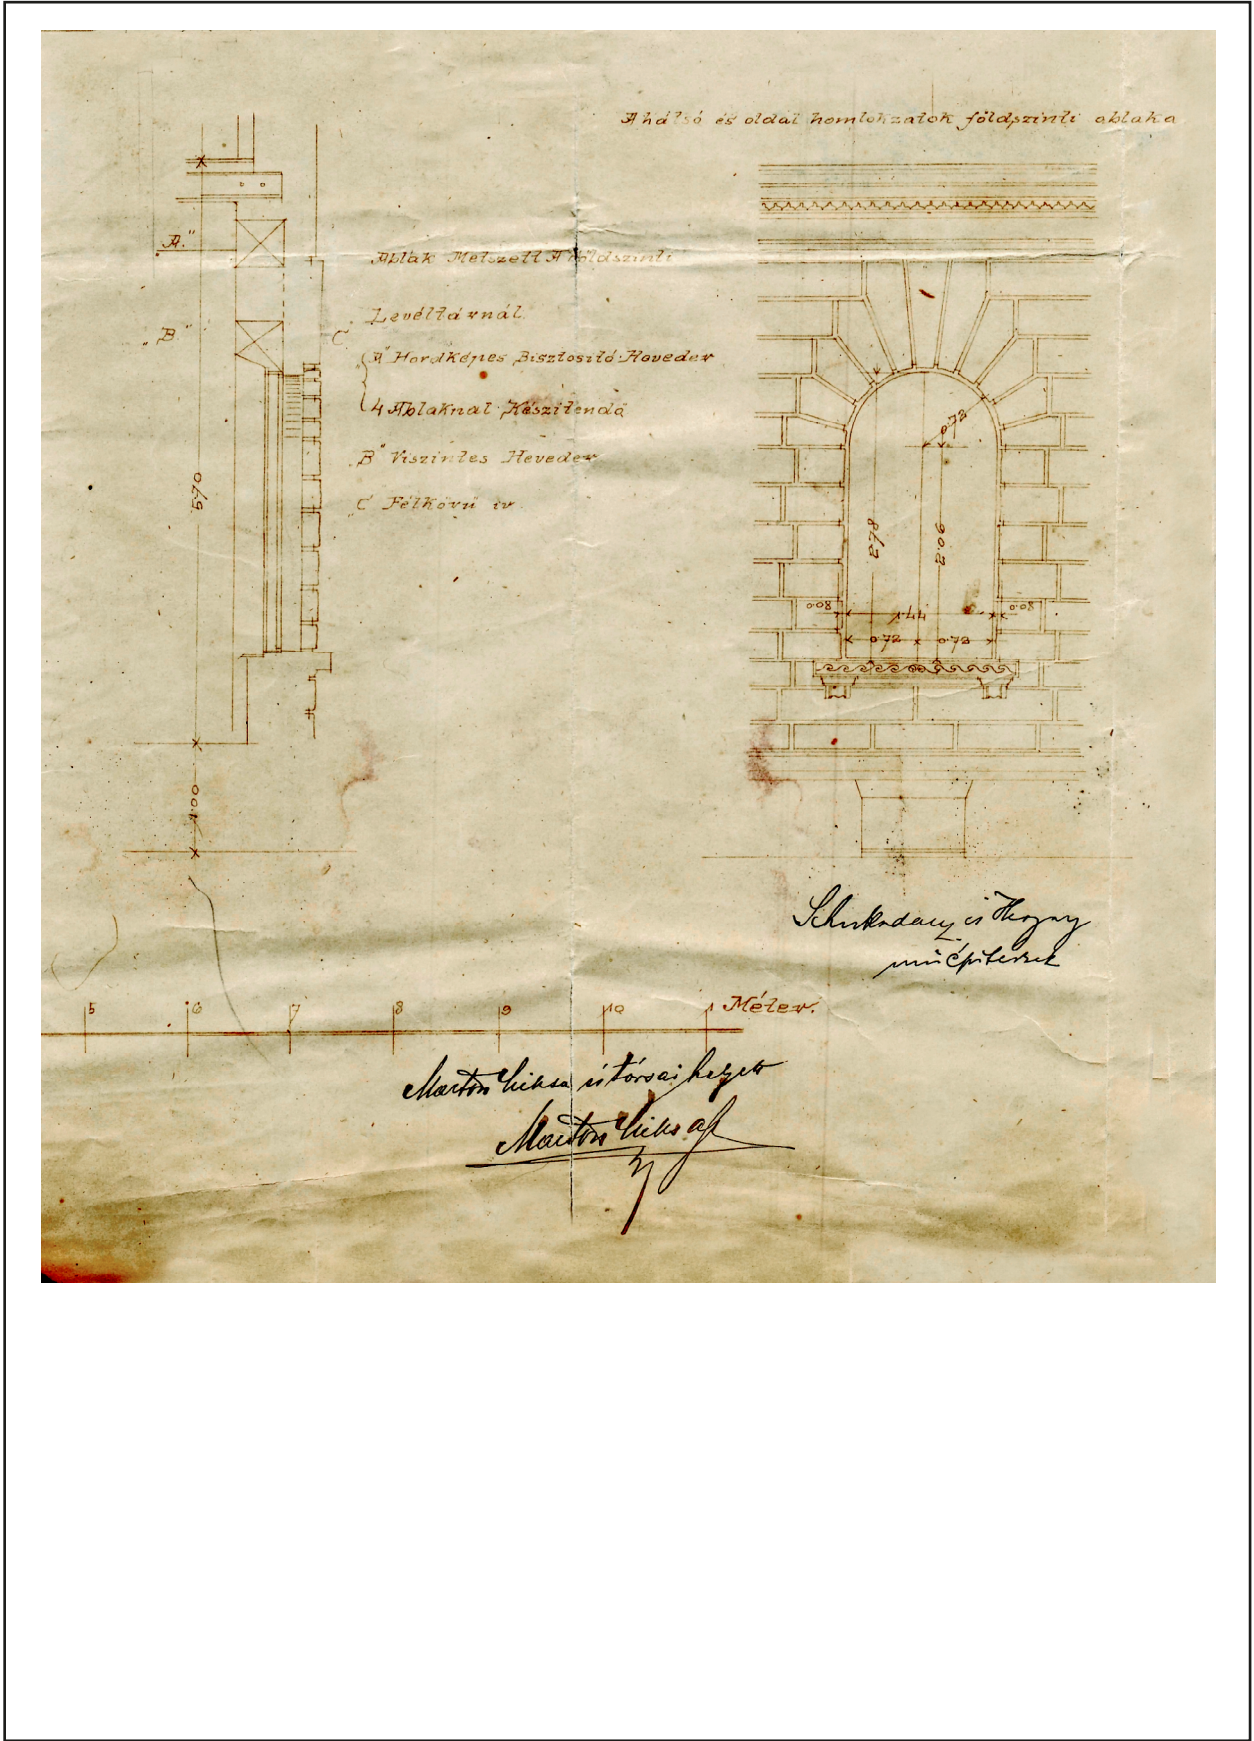 A hátsó és oldal homlokzatok földszinti ablaka
Ablak Metszett A földszinti
Levéltárnál.
„A" Hordképes Bisztositó Heveder
4 Ablaknál Készitendő
„B" Viszintes Heveder
„C Félkörü iv.
„A."
„B"
C
5.70
1.00
0.72
2.78
2.06
0.08
1.44
0.08
0.72
0.72
és
müépitészek
5 6 7 8 9 10 1 Méter.
Márton és társai helyett
Márton